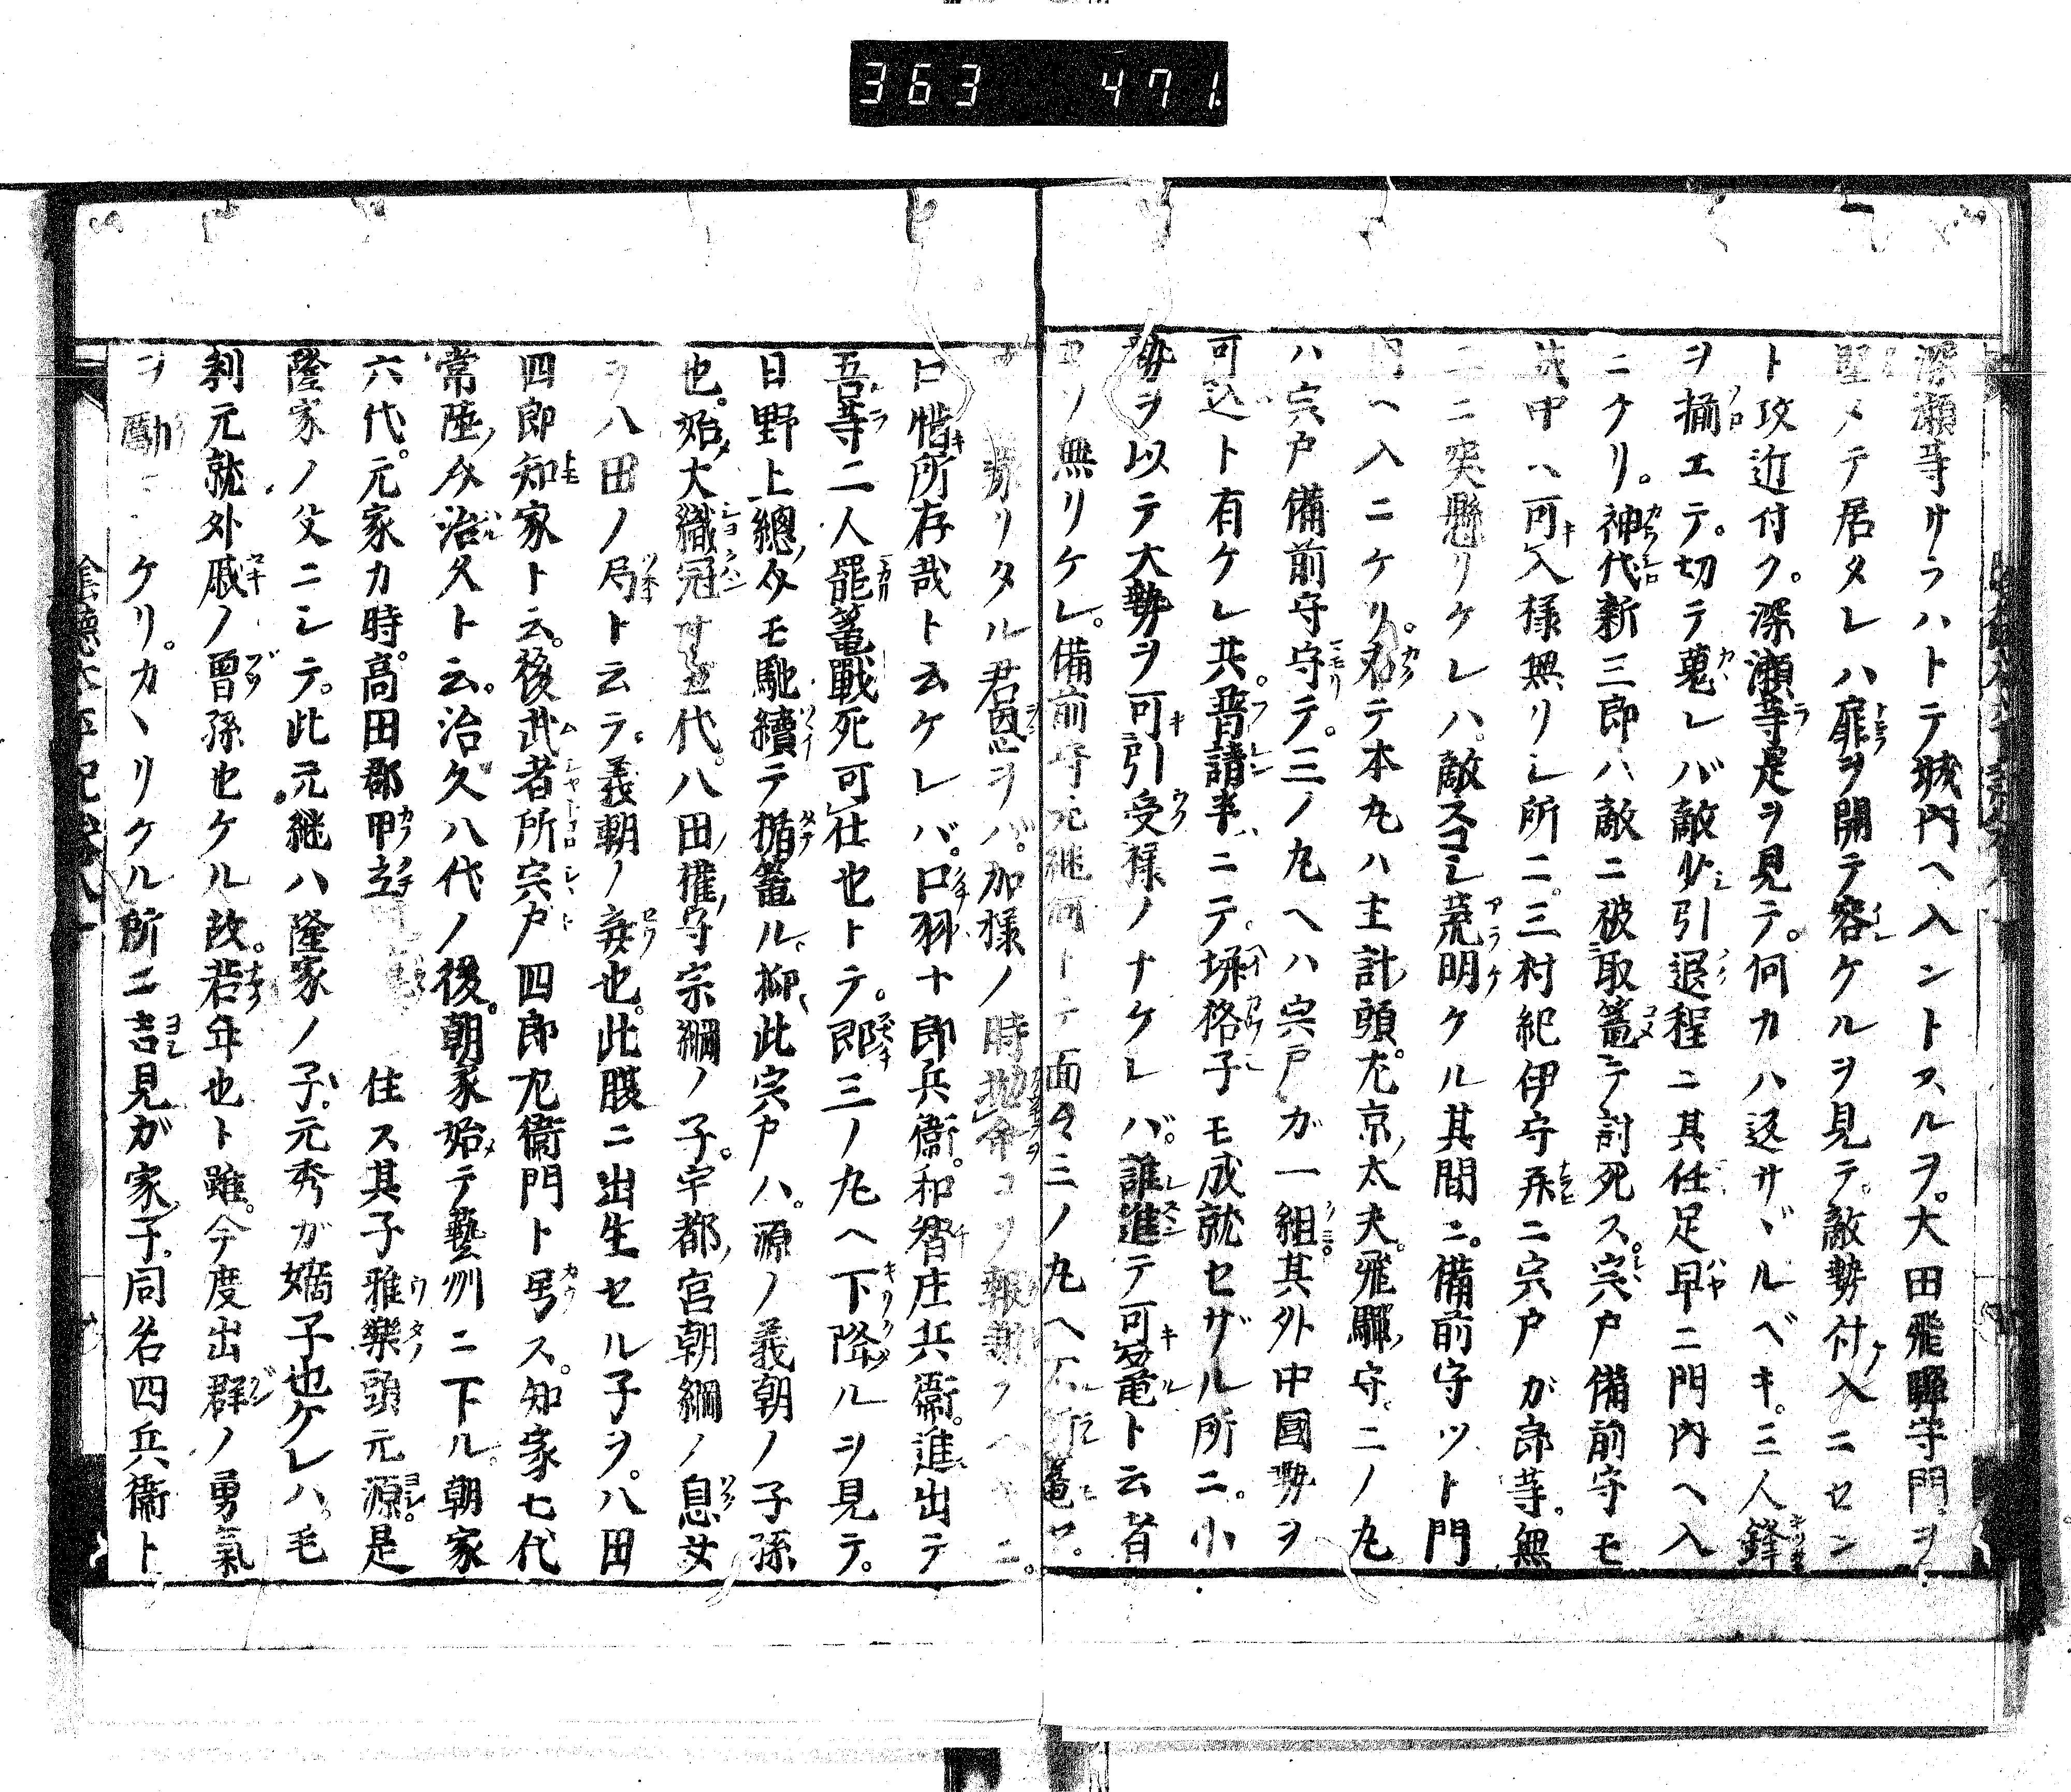 363 471
深瀬等サラハトテ城門ヘ入ントスルヲ。大田飛騨守門ヲ
堅メテ居タレハ扉ヲ開テ容ケルヲ見テ。敵勢付入ニセン
ト攻近付ク。深瀬等是ヲ見テ。何カハ返サヾルベキ。三人鋒
ヲ揃エテ。切テ蒐レバ敵少引退程ニ其任足早ニ門内ヘ入
ニケリ。神代新三郎ハ敵ニ被取篭テ討死ス。宍戸備前守モ
城中ハ可入様無リシ所ニ。三村紀伊守并ニ宍戸ガ郎等。無
二ニ突懸リケレハ。敵スコシ荒明ケル其間ニ。備前守ツト門
内ヘ入ニケリ。角テ本丸ハ主計頭。左京太夫。飛騨守。二ノ丸
ハ宍戸備前守守テ。三ノ丸ヘハ宍戸ガ一組。其外中國勢ヲ
可込ト有ケレ共。普請半ニテ。塀格子モ成就セザル所ニ。小
勢ヲ以テ大勢ヲ可引受様ノナケレバ。誰進テ可篭ト云者
コソ無リケレ。備前守元継何トテ面々三ノ丸ヘハ篭ロ。
蒙リタル君恩ヲバ。加様ノ時抛命コソ報謝スヘキニ。
口惜所存哉ト云ケレバ。口羽十郎兵衞。和智庄兵衞。進出テ
吾等二人罷篭戰死可仕也トテ。即三ノ丸ヘ下降ルヲ見テ。
日野上總介モ馳續テ楯篭ル。抑此宍戸ハ。源ノ義朝ノ子孫
也。始大織冠十五代。八田權守宗綱ノ子。宇都宮朝綱ノ息女
ヲ八田ノ局ト云ヲ。義朝ノ妾也。此腹ニ出生セル子ヲ。八田
四郎知家ト云。後武者所宍戸四郎左衞門ト号ス。知家七代
常陸介治久ト云。治久八代ノ後。朝家始テ藝州ニ下ル。朝家
六代。元家カ時。高田郡甲立 住ス其子雅樂頭元源。是
隆家ノ父ニシテ。此元継ハ隆家ノ子。元秀ガ嫡子也ケレハ。毛
利元就外戚ノ曽孫也ケル故。若年也ト雖。今度出群ノ勇氣
ヲ勵シケリ。カヽリケル所ニ吉見ガ家子。同名四兵衞ト
陰徳太平記巻八十